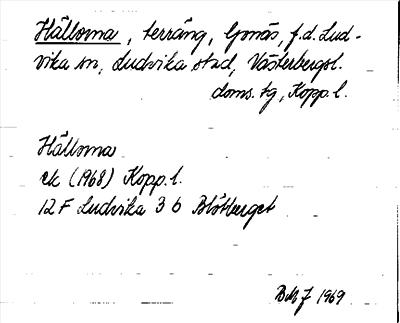 Hällorna, terräng, Gonäs, f.d. Lud-
vika sn, Ludvika stad, Västerbergsl.
doms. tg, Kopp. l.
Hällorna
ek (1968) Kopp. l.
12 F Ludvika 3 b Blötberget
1969